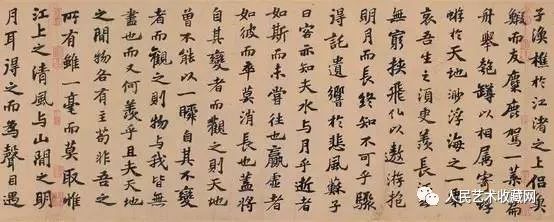 子漁樵於江渚之上侶魚
鰕而友麋鹿駕一葉之扁
舟舉匏罇以相屬寄蜉
蝣於天地渺浮海之一
哀吾生之須臾羨長
無窮挾飛仙以遨遊抱
明月而長終知不可乎驟
得託遺響於悲風蘇子
曰客亦知夫水與月乎逝者
如斯而未嘗往也贏虛者
如彼而卒莫消長也蓋將
自其變者而觀之則天地
曾不能以一瞬自其不變
者而觀之則物與我皆無
盡也而又何羨乎且夫天地
之間物各有主苟非吾之
所有雖一毫而莫取惟
江上之清風與山間之明
月耳得之而為聲目遇
人民艺术收藏网